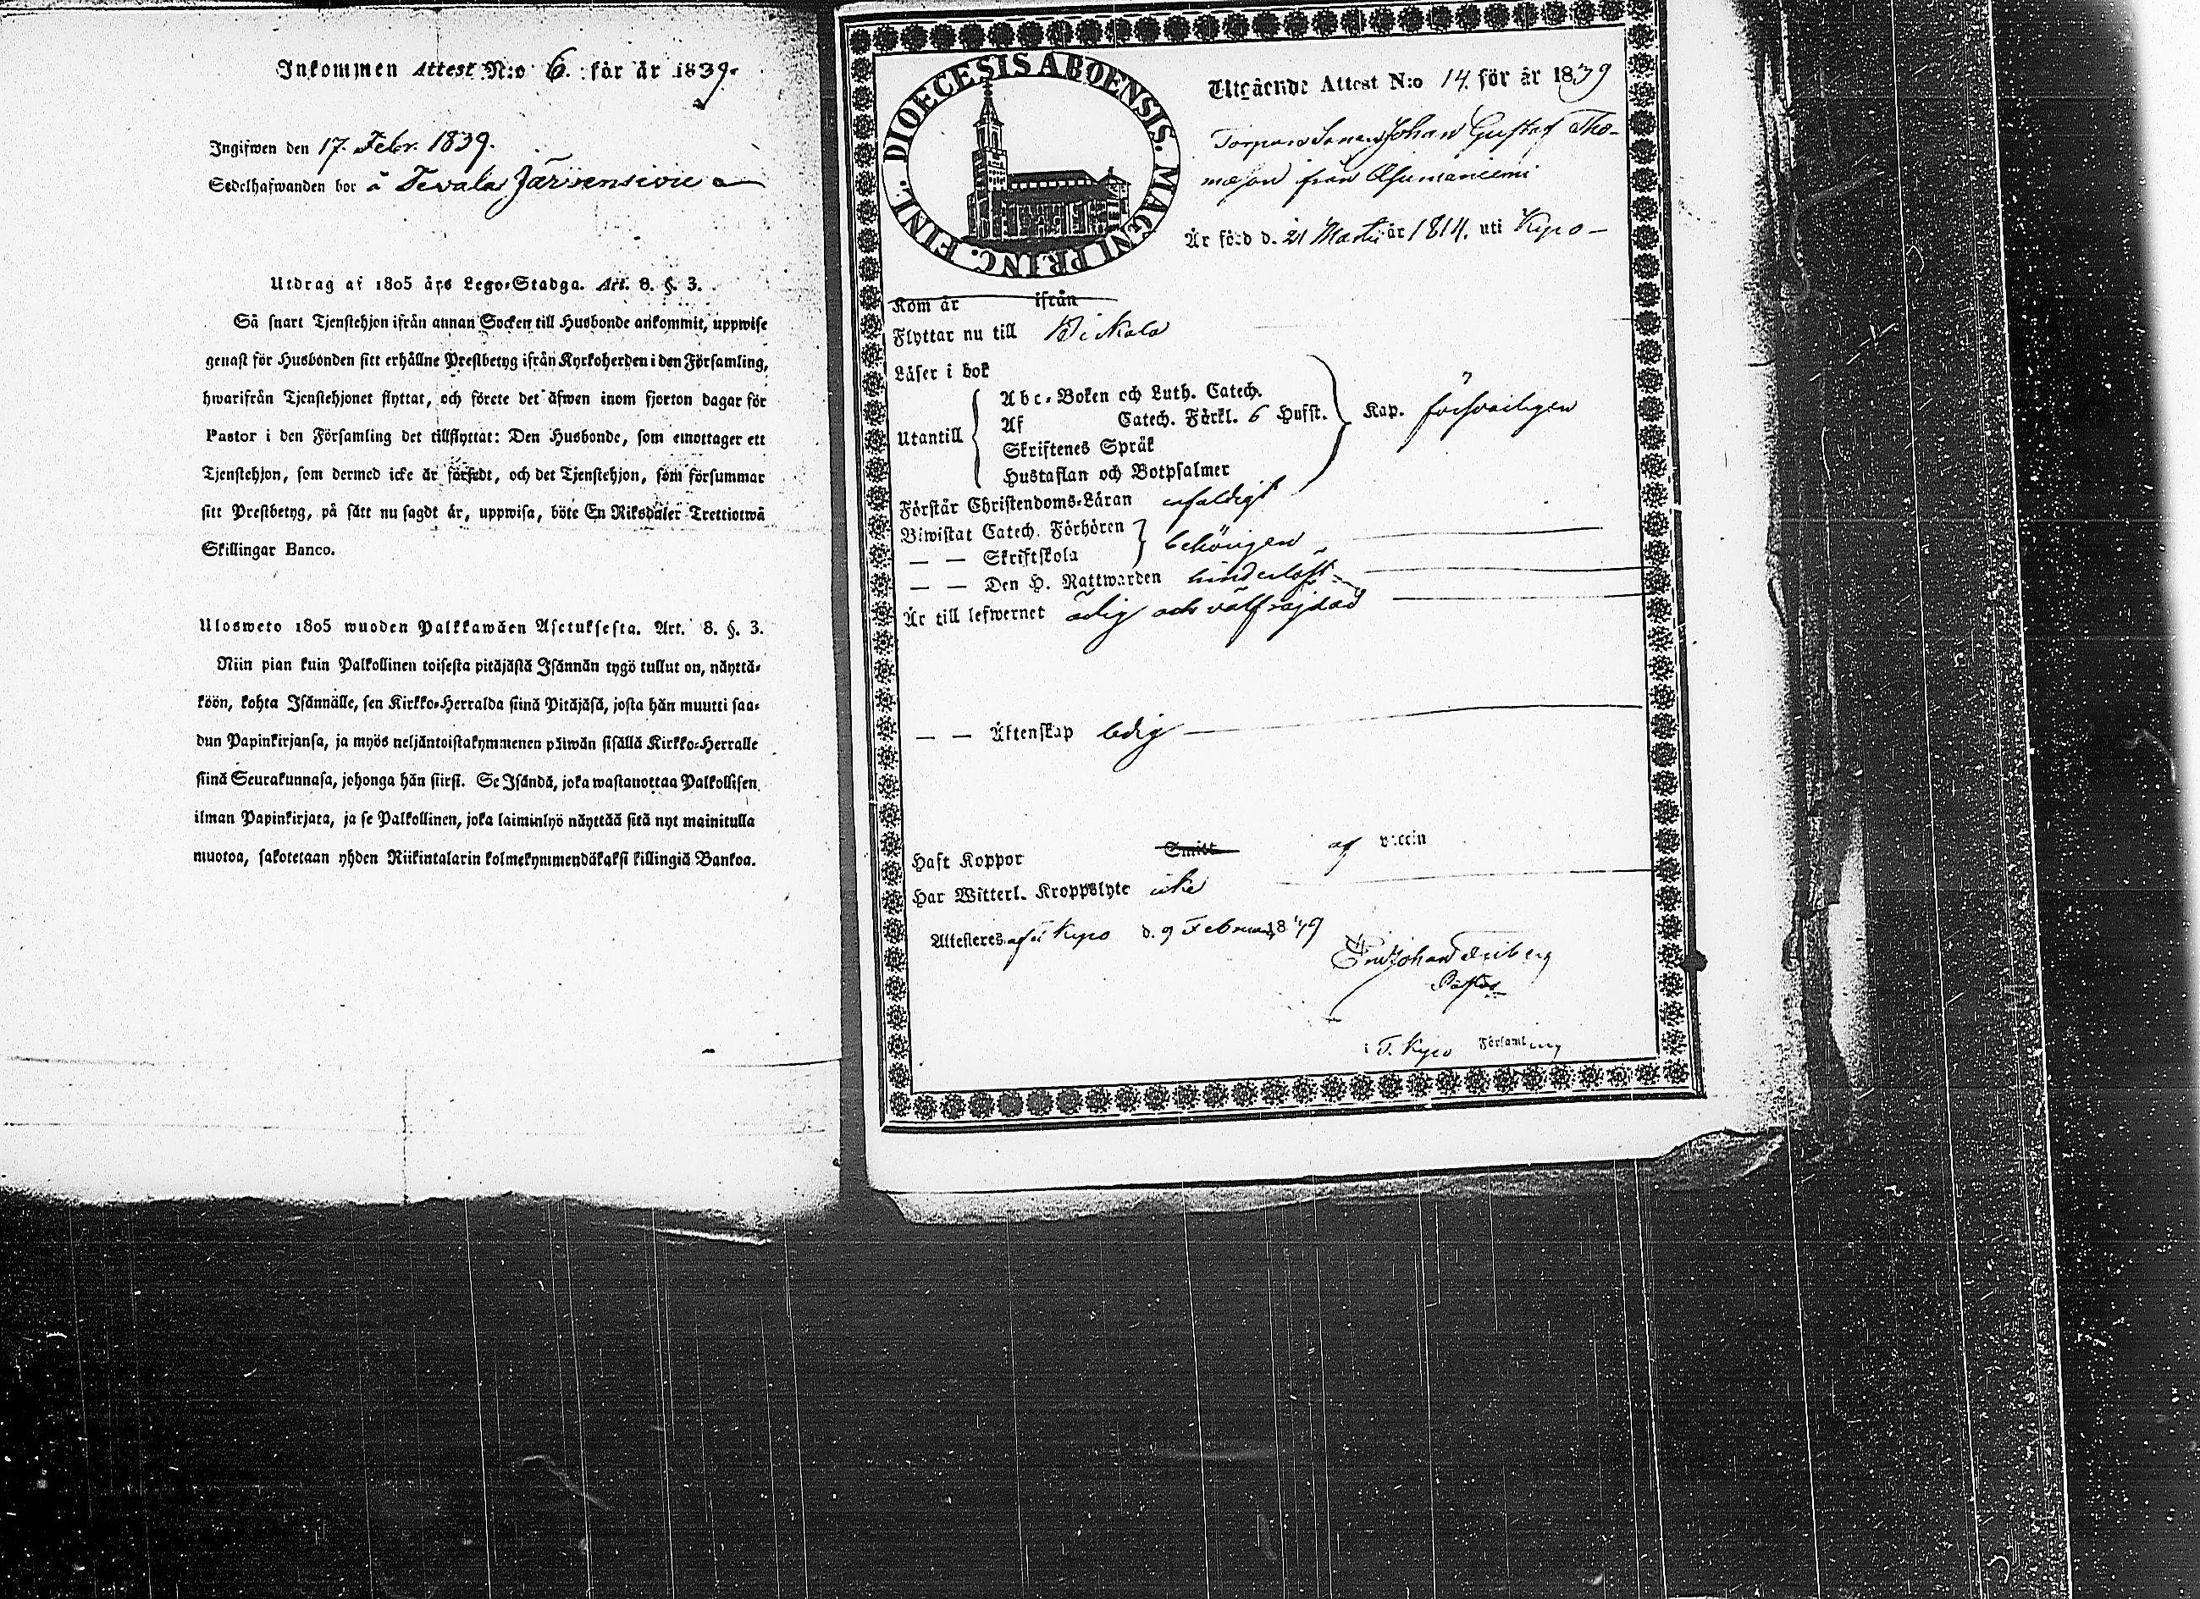 Inkommen Attest N:o 6. för år 1839.
Ingifwen den 17. Febr. 1839.
Sedelhafwanden bor å Tevala Järvensivu
Utdrag af 1805 års Lego-Stadga. Art. 8. §. 3.
Så snart Tjenstehjon ifrån annan Socken till Husbonde ankommit, uppwise
genast för Husbonden sitt erhållne Prestbetyg ifrån Kyrkoherden i den Församling,
hwarifrån Tjenstehjonet flyttat, och förete det äfwen inom fjorton dagar för
Pastor i den Församling det tillflyttat: Den Husbonde, som emottager ett
Tjenstehjon, som dermed icke är försedt, och det Tjenstehjon, som försummar
sitt Prestbetyg, på sätt nu sagdt är, uppwisa, böte En Riksdaler Trettiotwå
Skillingar Banco.
Ulosweto 1805 wuoden Palkkawäen Asetuksesta. Art. 8. §. 3.
Niin pian kuin Palkollinen toisesta pitäjästä Isännän tygö tullut on, näyttä-
köön, kohta Isännälle, sen Kirkko-Herralda siinä Pitäjäsä, josta hän muutti saa-
dun Papinkirjansa, ja myös neljäntoistakymmenen päiwän sisällä Kirkko-Herralle
siinä Seurakunnasa, johonga hän siirsi. Se Isändä, joka wastanottaa Palkollisen
ilman Papinkirjata, ja se Palkollinen, joka laiminlyö näyttää sitä nyt mainitulla
muotoa, sakotetaan yhden Riikintalarin kolmekymmendäkaksi killingiä Bankoa.
DIOECESIS ABOENSIS. MAGNI PRINC. FINL.
Utgående Attest N:o 14. för år 1839
Johan Gustaf Tho-
masson från
Är född d. 21 Martii år 1814. uti Kyro
Kom år ifrån
Flyttar nu till
Läser i bok
Utantill
Abc-Boken och Luth. Catech.
Af Catech. Förkl. 6 Hufst.
Skriftenes Språk
Hustaflan och Botpsalmer
Kap. försvarligen
Förstår Christendoms-Läran enfaldigt
Biwistat Catech. Förhören
— — Skriftskola
behörigen
— — Den H. Nattwarden hinderlöst
Är till lefwernet ärlig och välfräjdad
— — Äktenskap ledig
Haft Koppor Smitt af vaccin
Har Witterl. Kroppslyte icke
Attesteras af Kyro d. 9 Februarii 1839
Johan Friberg
Pastor
i T. Kyro Församling